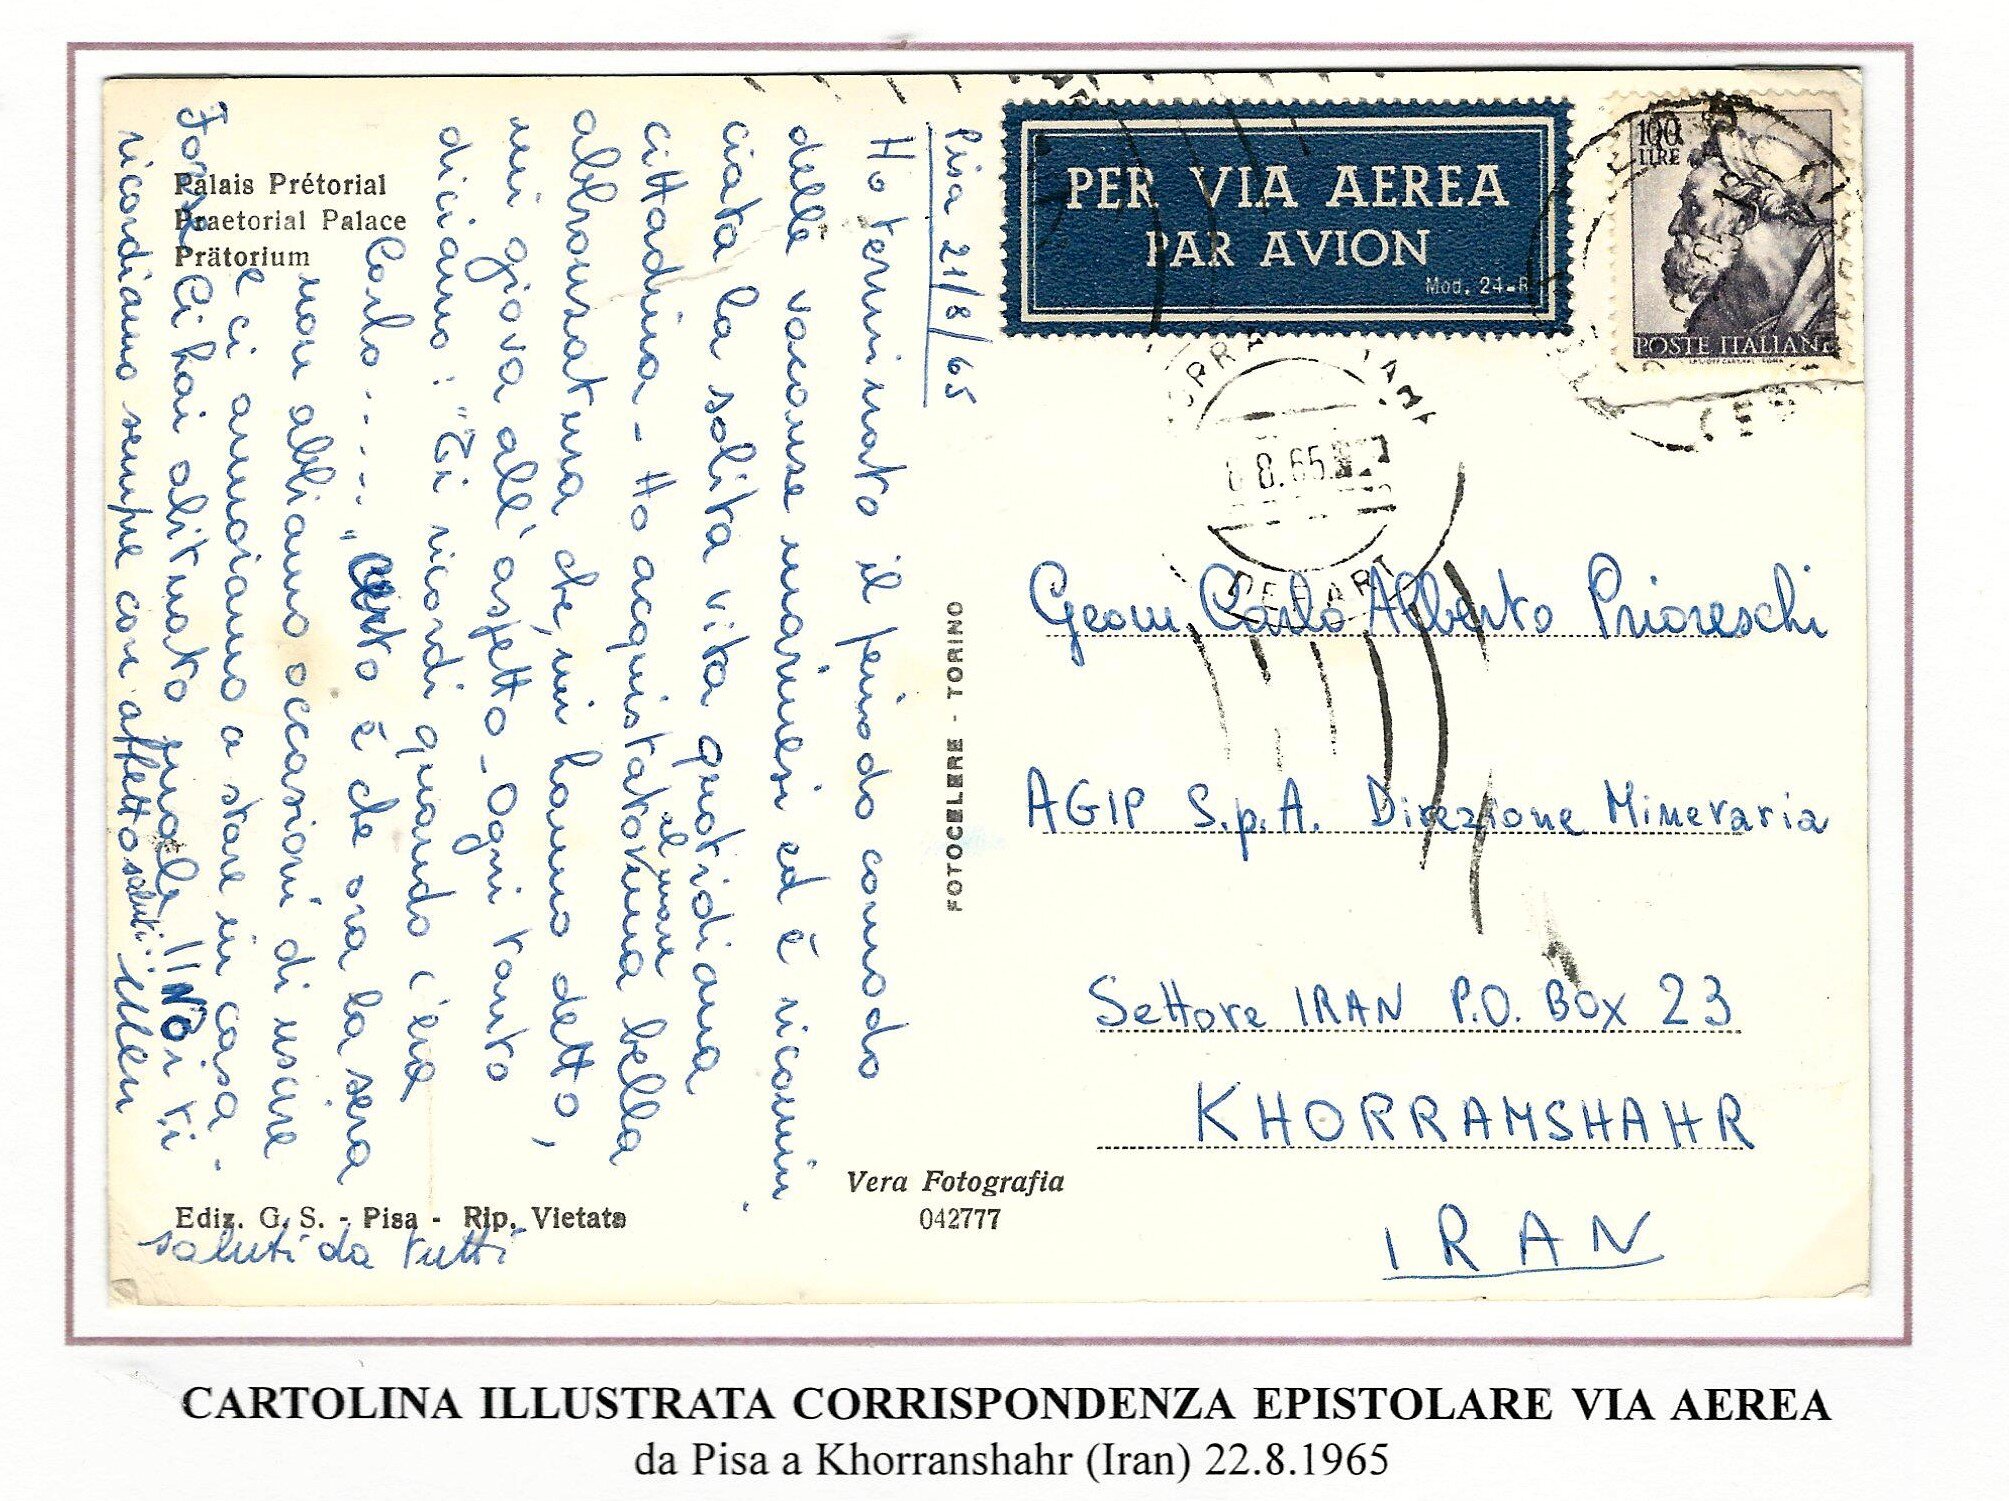 Palais Prétorial
Praetorial Palace
Prätorium
Pisa 21/8/65
Ho terminato il periodo comodo
delle vacanze marinesi ed è ricomin
ciata la solita vita quotidiana
cittadina - Ho acquistato al mare una bella
abbronzatura che, mi hanno detto,
mi giova all'aspetto - Ogni tanto
diciamo: "Ti ricordi quando c'era
Carlo ..... " Certo è che ora la sera
non abbiamo occasioni di uscire
e ci annoiamo a stare in casa.
Forse ci hai abituato !! Noi ti
ricordiamo sempre con affetto saluti
saluti da tutti
Ediz. G. S. - Pisa - Rip. Vietata
FOTOCELERE - TORINO
Vera Fotografia
042777
PER VIA AEREA
PAR AVION
Mod. 24-R
100
LIRE
POSTE ITALIANE
8.65
DEPART
Geom Carlo Alberto Prioreschi
AGIP S.p.A. Direzione Mineraria
Settore IRAN P.O. BOX 23
KHORRAMSHAHR
IRAN
CARTOLINA ILLUSTRATA CORRISPONDENZA EPISTOLARE VIA AEREA
da Pisa a Khorranshahr (Iran) 22.8.1965